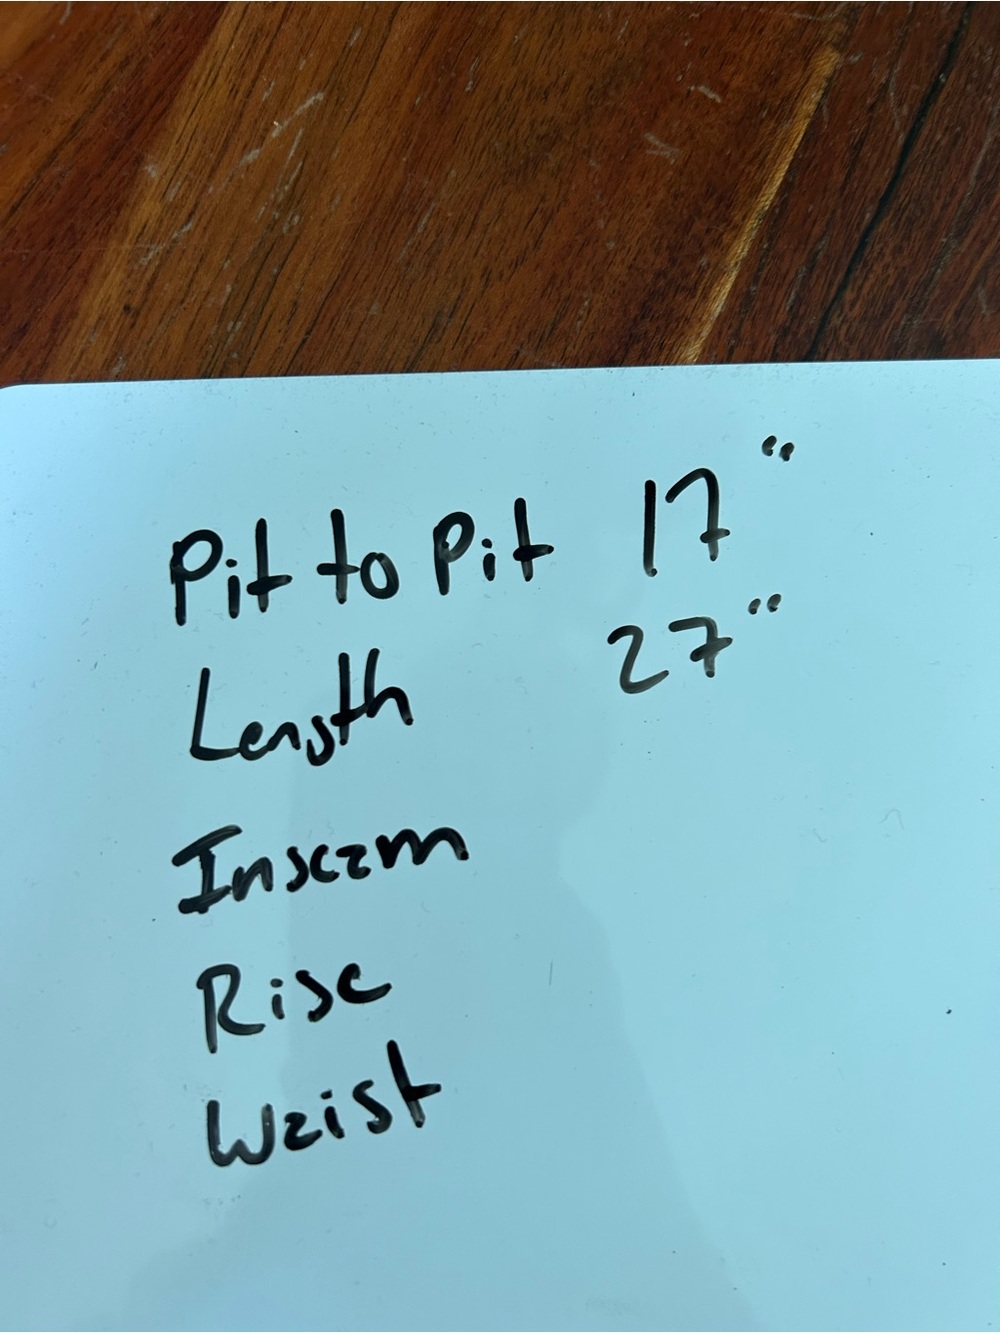 Pit to Pit 17"
Length 27"
Inseam
Rise
Waist